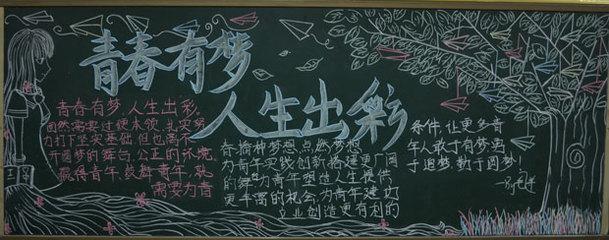 青春有梦
人生出彩
青春有梦 人生出彩,
固然需要过硬本领,扎实努
力打下坚实基础 但也离不
开圆梦的舞台,公正的环境。
赢得青年,鼓舞青年,就
需要为青
春插神梦想 点燃梦想
为青年实践创新搭建更广阔
的舞台为青年塑造人生提供
更丰富的机会,为青年建功
立业创造更有利的
条件,让更多青
年人敢于有梦勇
于追梦勤于圆梦!